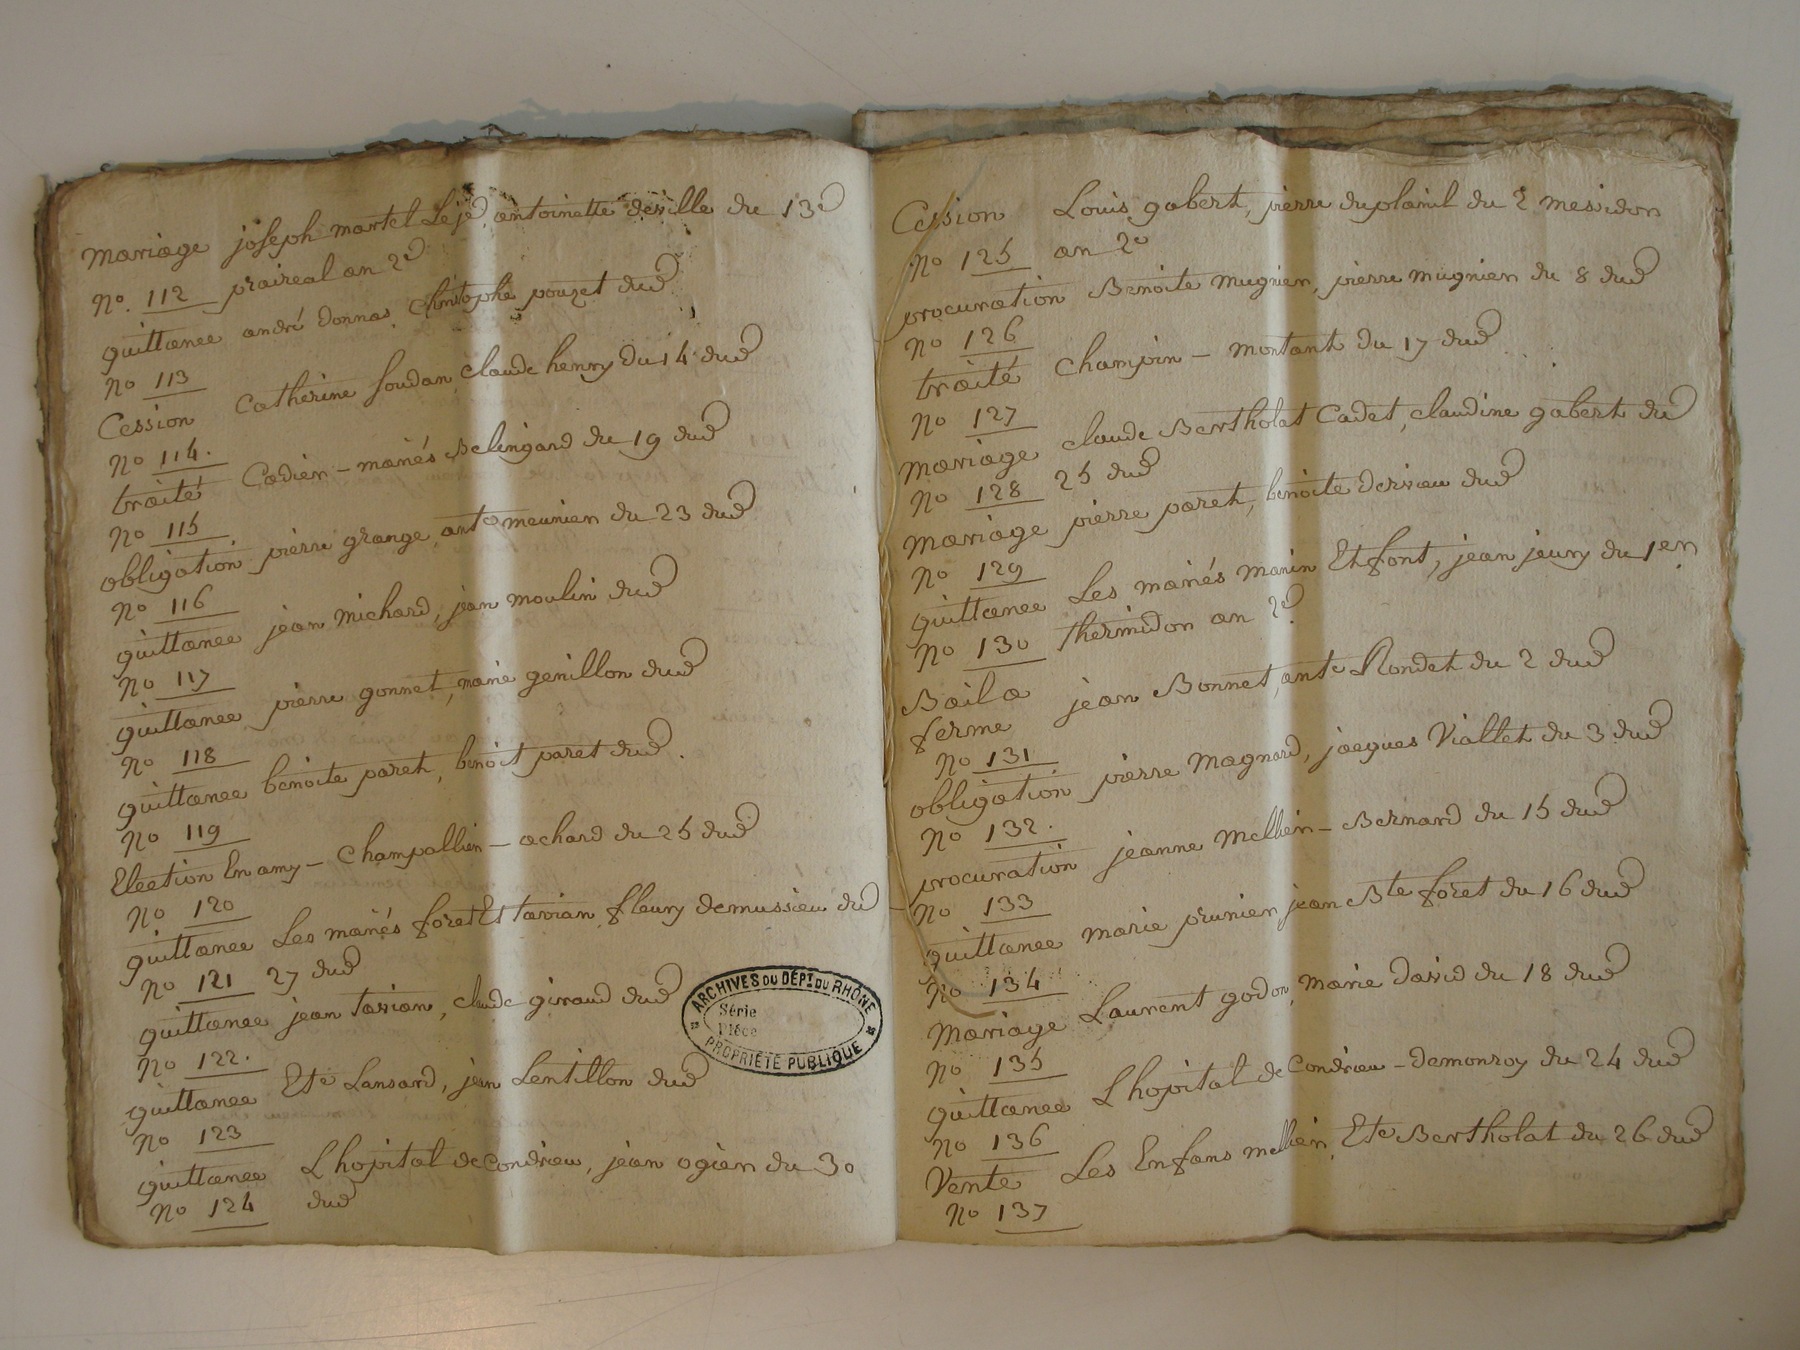 Mariage joseph martel Le je, antoinette deville du 13e
No. 112 praireal an 2e
quittance andré donnas, Christophe pouzet dud
No 113
Cession Catherine soudan, claude henry du 14 dud
No 114.
traité Cadier - mariés Belingard du 19 dud
No 115
obligation pierre grange, ante meunier du 23 dud
No 116
quittance jean michard, jean moulin dud
No 117
quittance pierre gonnet, marie genillon dud
No 118
quittance benoite paret, benoit paret dud.
No 119
Election En amy - Champallier - achard du 25 dud
No 120
quittance Les mariés foret Et tavian, fleury demussieu du
No 121 27 dud
quittance jean tavian, claude giraud dud
No 122.
quittance Ete Lansard, jean Lentillon dud
No 123
quittance L hopital de Condrieu, jean ogier du 30
No 124 dud
ARCHIVES DU DÉPT DU RHÔNE
Série
Pièce
PROPRIÉTÉ PUBLIQUE
Cession Louis gabert, pierre duplanil du 2 messidor
No 125 an 2e
procuration Benoite mugnier, pierre mugnier du 8 dud
No 126
traité Champin - montant du 17 dud
No 127
Mariage claude Bertholat Cadet, claudine gabert du
No 128 25 dud
Mariage pierre paret, benoite dervieu dud
No 129
quittance Les mariés marin Et font, jean jaury du 1er
No 130 thermidor an 2e
Bail a
ferme jean Bonnet, ante Rondet du 2 dud
No 131
obligation pierre Magnard, jacques Viallet du 3 dud
No 132.
procuration jeanne mellier - Bernard du 15 dud
No 133
quittance marie prunier, jean Bte foret du 16 dud
No 134
Mariage Laurent godon, marie david du 18 dud
No 135
quittance L hopital de Condrieu - demonroy du 24 dud
No 136
Vente Les Enfans mellier, Ete Bertholat du 26 dud
No 137